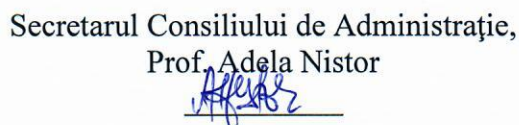 Secretarul Consiliului de Administraţie,
Prof. Adela Nistor